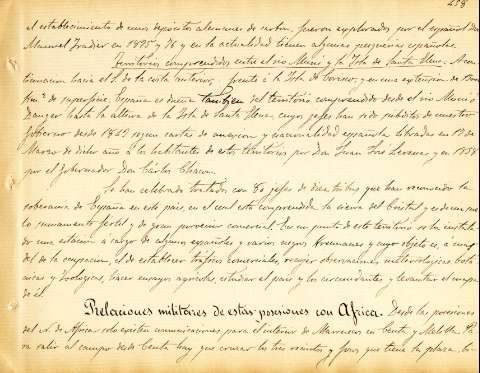 258
el establecimiento de unos depósitos alemanes de carbon, fueron explorados por el español Don
Manuel Iradier en 1875 y 76 y en la actualidad tienen algunas pesquerias españolas.
Territorios comprendidos entre el rio Muni y la Isla de Santa Elena. A con-
tinuacion hacia el S. de la costa anterior, frente á la Isla de Corisco, y en una extension de
km.² de superficie, España es dueña tambien del territorio comprendido desde el rio Muni ó
Danger hasta la altura de la Isla de Santa Elena, cuyos gefes han sido subditos de nuestro
Gobierno desde 1843 segun cartas de anexion y nacionalidad española libradas en
Marzo de dicho año a los habitantes de estos territorios por Don Juan José Lerena y en 1858
por el Gobernador Don Cárlos Chacon.
Se han celebrado tratados con 80 gefes de diez tribus, que han reconocido la
soberania de España en este pais, en el cual está comprendida la sierra del Cristal y es de un sue-
lo sumamente fertil y de gran porvenir comercial. En un punto de este territorio se ha instala-
do una estacion á cargo de algunos españoles y varios negros Krumanes y cuyo objeto es, á mas
de la ocupacion, el de establecer tráficos comerciales, recoger observaciones meteorológicas botá-
nicas y Zoologicas, hacer ensayos agricolas, estudiar el pais y los circundantes y levantar el mapa
de él.
Relaciones militares de estas posesiones con Africa. Desde las posesiones
del N. de Africa solo existen comunicaciones para el interior de Marruecos en Ceuta y Melilla. Pa-
ra salir al campo desde Ceuta hay que cruzar los tres recintos y fosos que tiene la plaza,